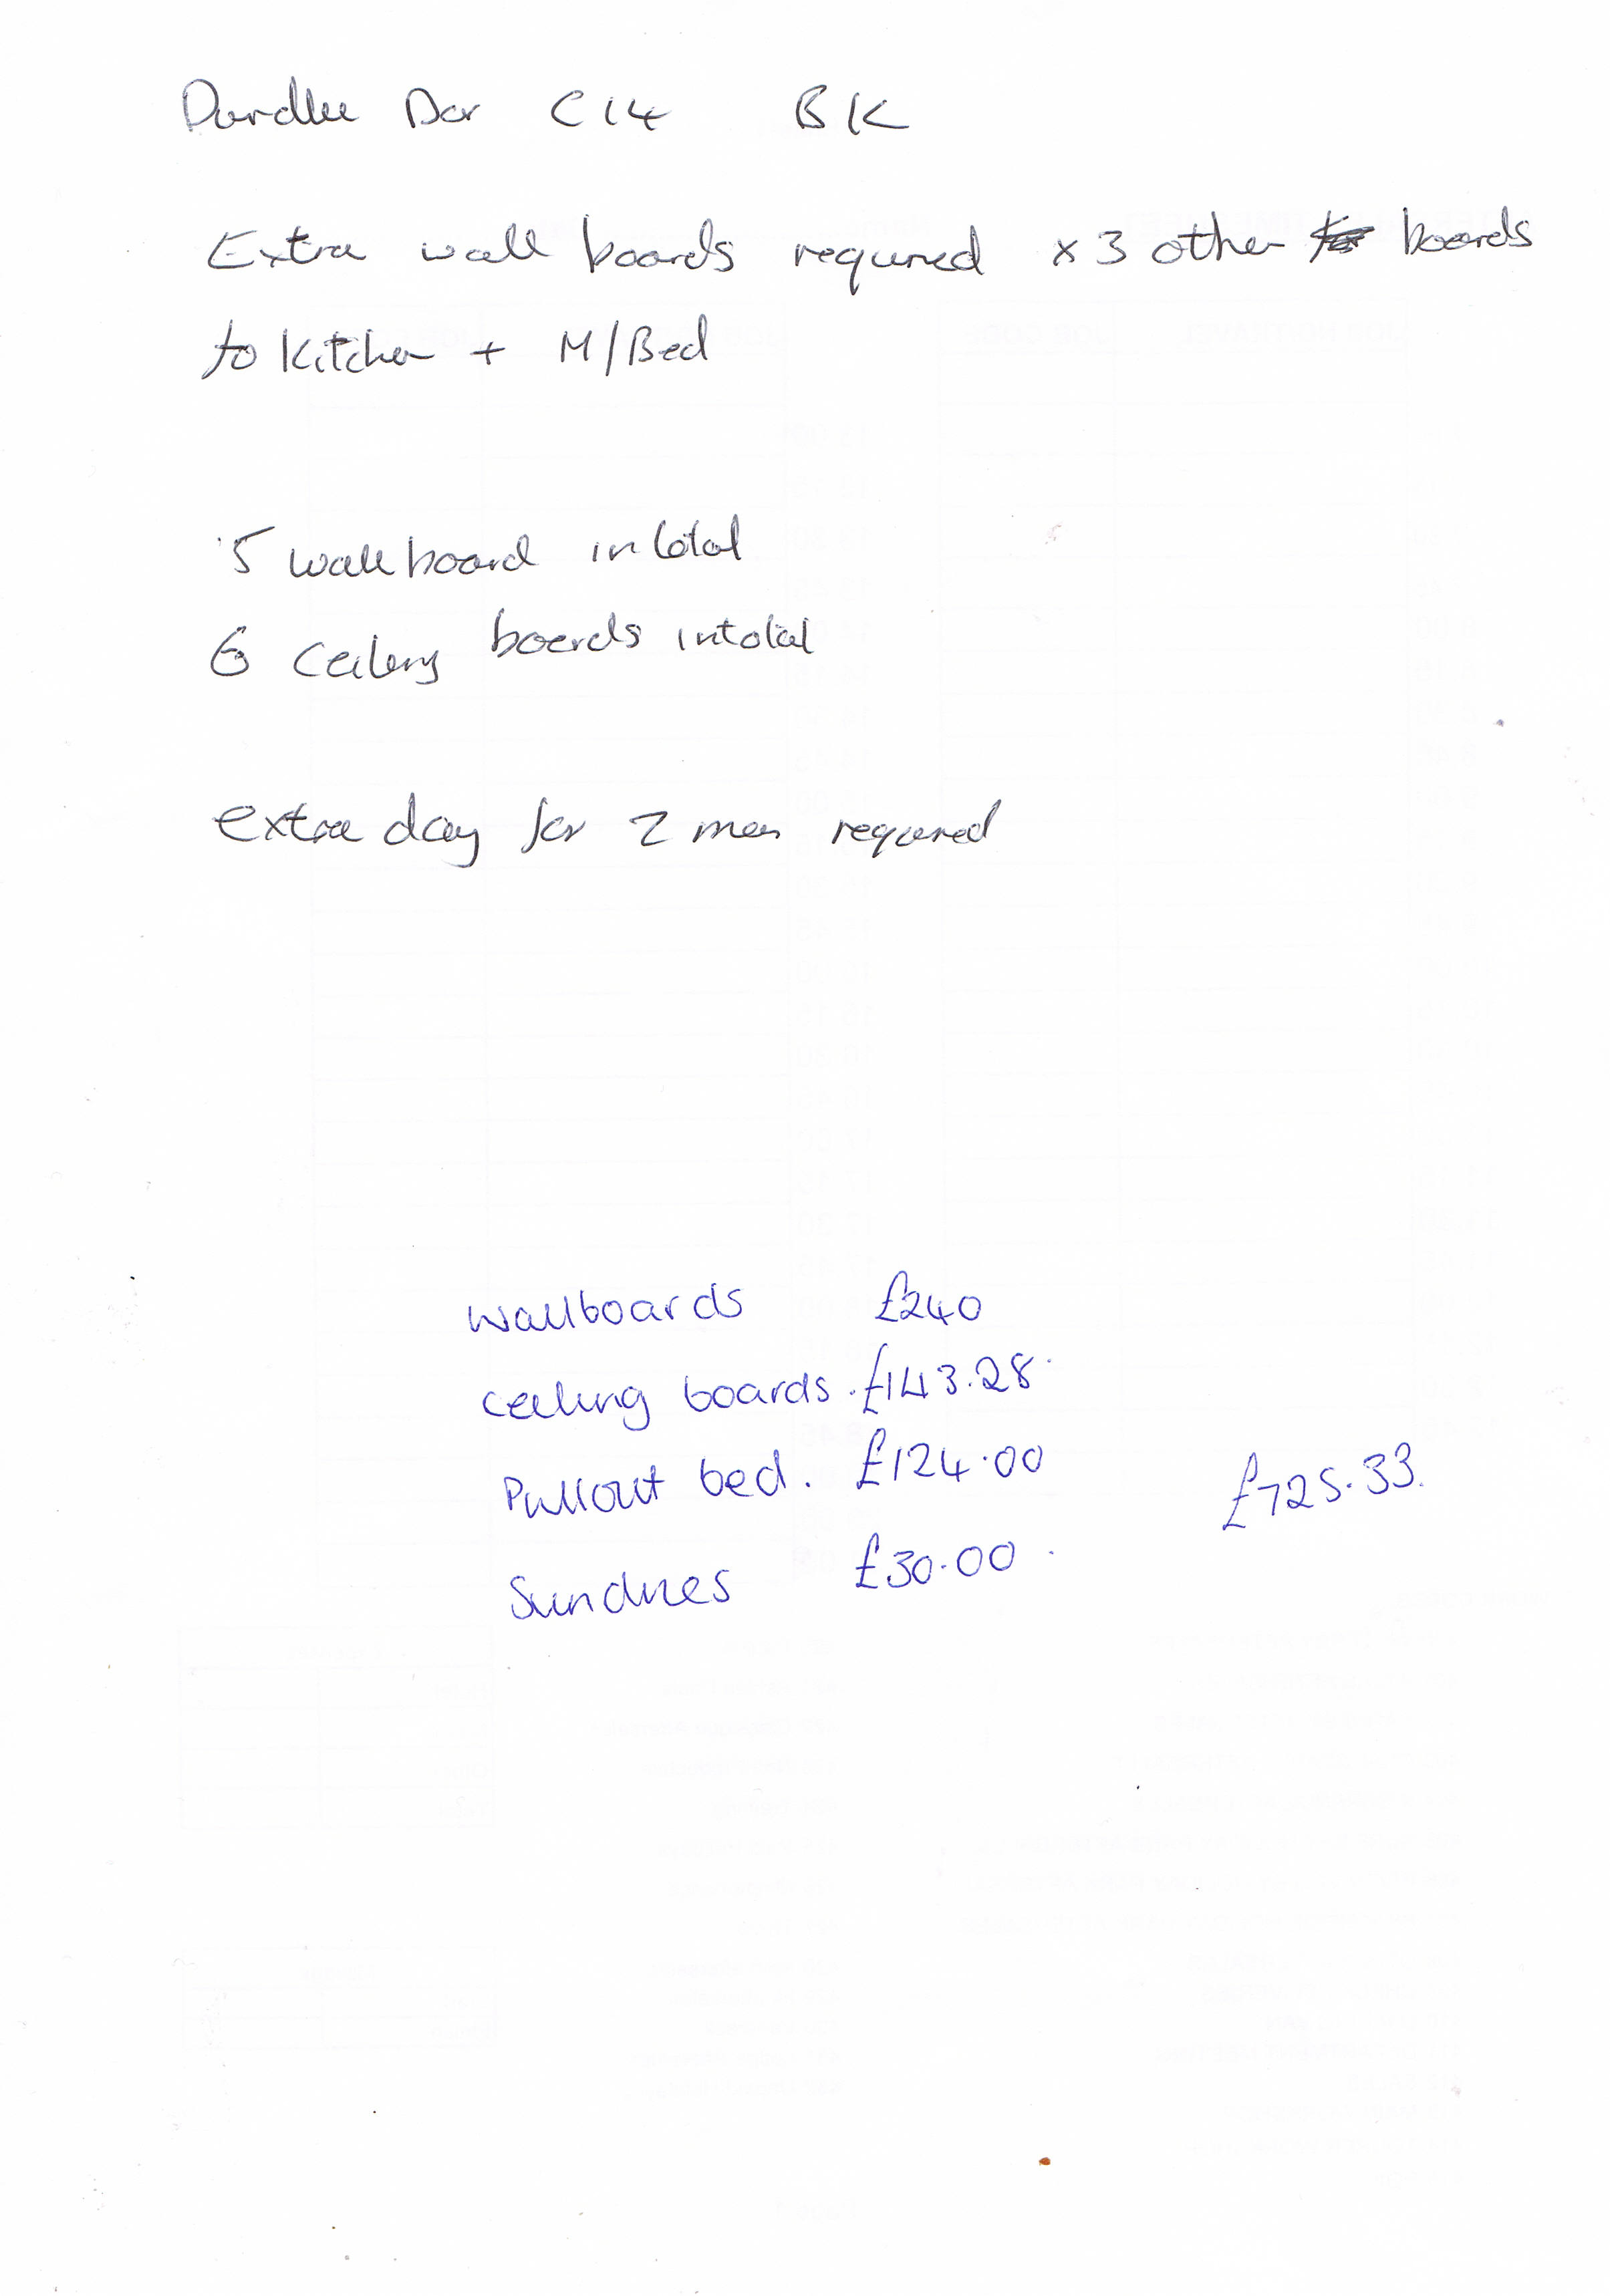 Dardlee Dor C14 BK
Extra wall boards required x 3 other boards
to Kitchen + M/Bed
5 wall board in total
6 Ceiling boards in total
extra day for 2 men required
wallboards £240
ceiling boards. £143.28
Pullout bed. £124.00
£725.33.
Sundries £30.00